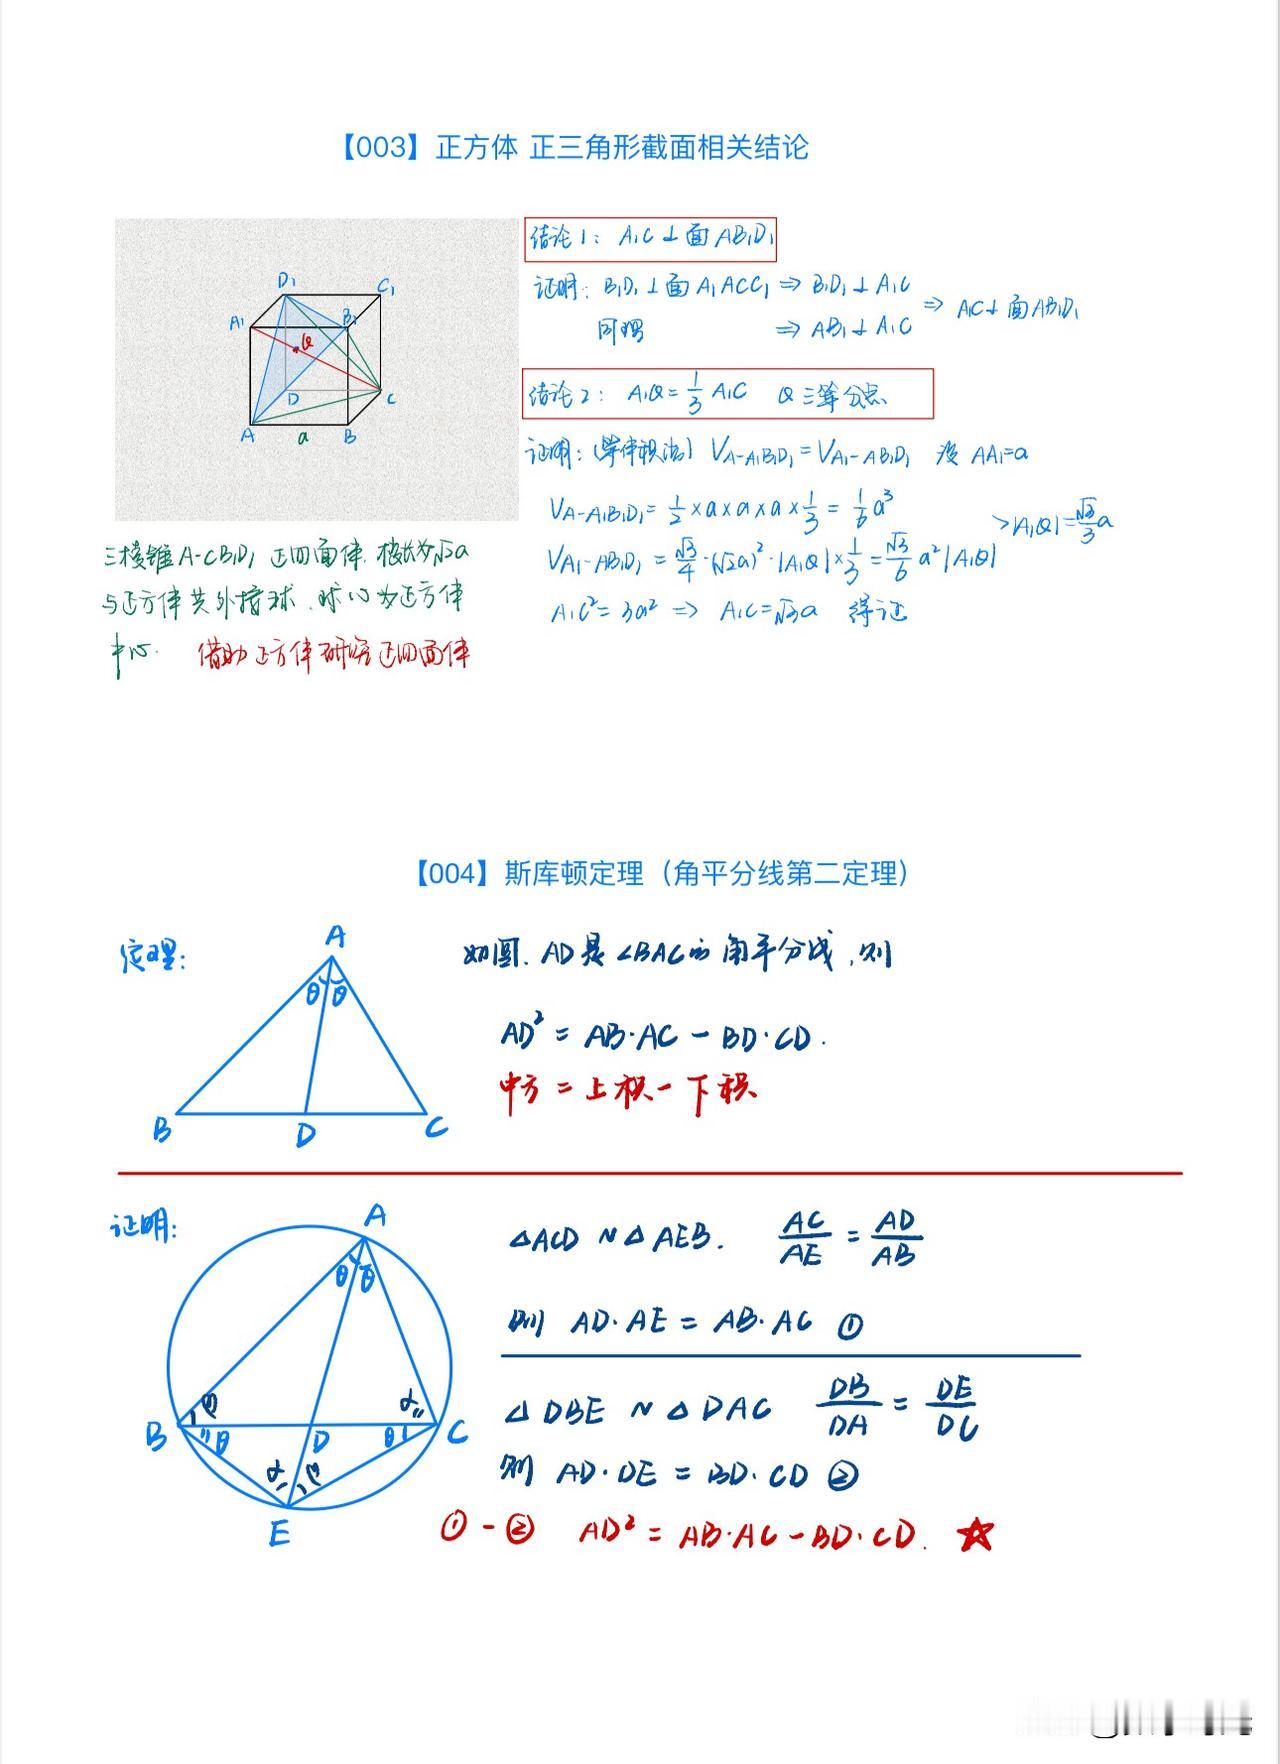 【003】正方体 正三角形截面相关结论
D₁
C₁
A₁
B₁
Q
D
C
A
a
B
结论1: A₁C⊥面AB₁D₁
证明: B₁D₁⊥面A₁ACC₁ ⇒ B₁D₁⊥A₁C
同理 ⇒ AB₁⊥A₁C
⇒ A₁C⊥面AB₁D₁
结论2: A₁Q=1/3 A₁C Q三等分点
证明: (等体积法) V_{A-A₁B₁D₁}=V_{A₁-AB₁D₁} 设AA₁=a
V_{A-A₁B₁D₁}=1/2×a×a×a×1/3=1/6a³
V_{A₁-AB₁D₁}=√3/4·(√2a)²·|A₁Q|×1/3=√3/6a²|A₁Q|
>|A₁Q|=√3/3a
A₁C²=3a² ⇒ A₁C=√3a 得证
三棱锥A-CB₁D₁ 正四面体.棱长为√2a
与正方体共外接球.球心为正方体
中心. 借助正方体研究正四面体
【004】斯库顿定理（角平分线第二定理）
定理:
A
θ θ
B
D
C
如图.AD是∠BAC的角平分线,则
AD²=AB·AC-BD·CD.
中方=上积-下积
证明:
A
θ θ
B
β
θ
D
α
θ
C
α
β
E
△ACD∽△AEB. AC/AE=AD/AB
则 AD·AE=AB·AC ①
△DBE∽△DAC DB/DA=DE/DC
则 AD·DE=BD·CD ②
①-② AD²=AB·AC-BD·CD. ☆